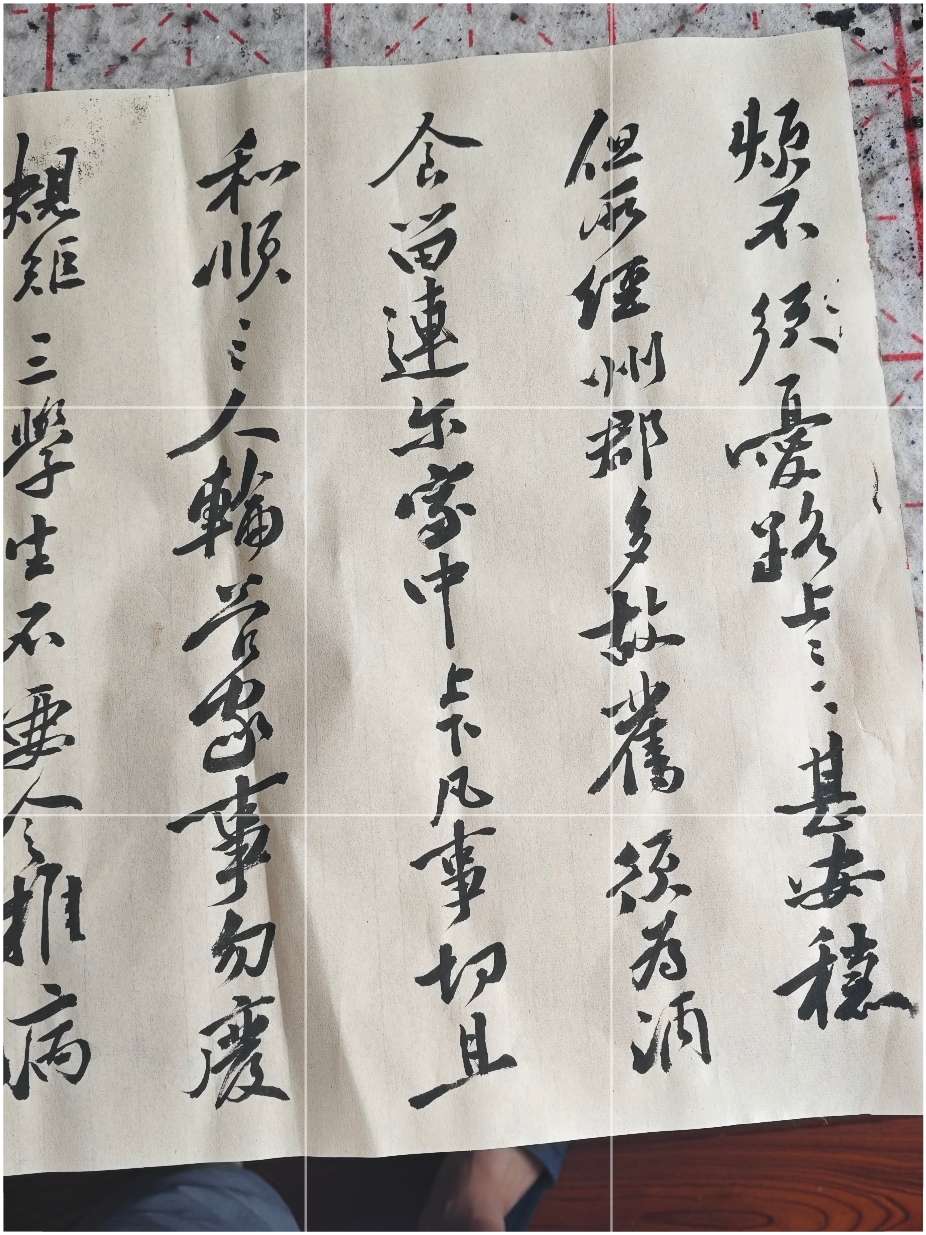 煩不須憂路上〻〻甚安穩
但所經州郡多故舊須為酒
食留連爾家中上下凡事切且
和順〻人輪管家事勿廢
規矩三學生不要令推病